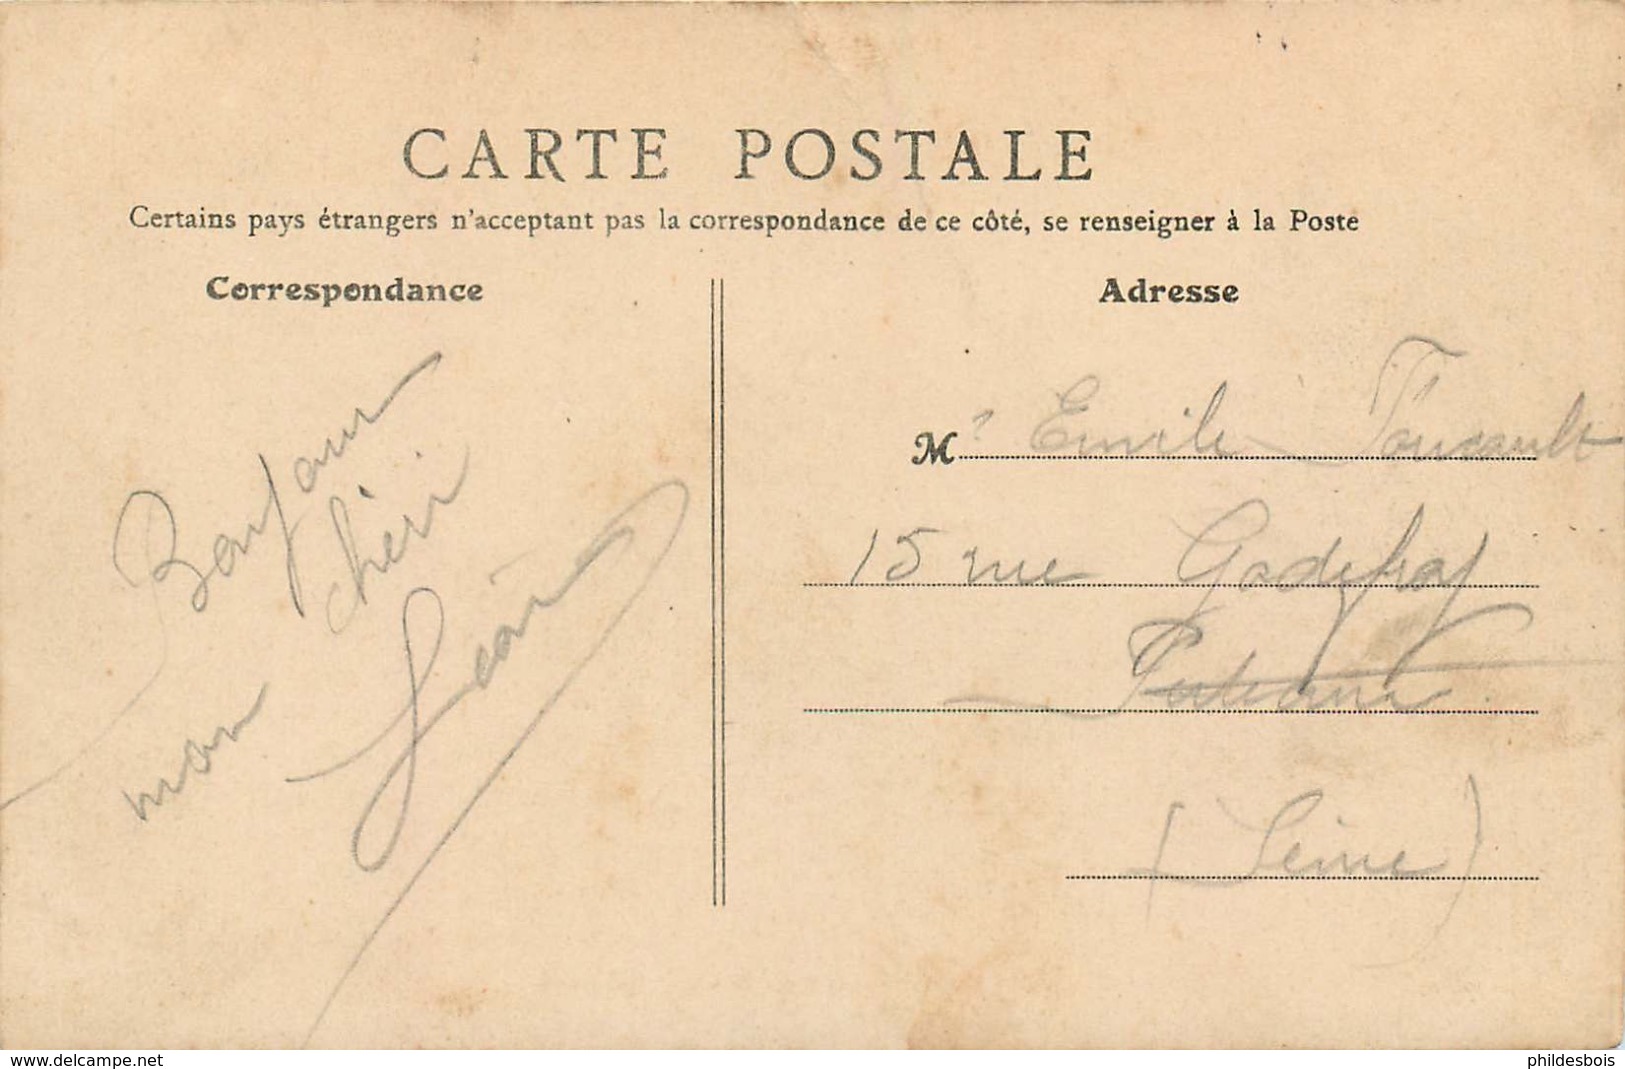 CARTE POSTALE
Certains pays étrangers n'acceptant pas la correspondance de ce côté, se renseigner à la Poste
Correspondance
Bonjour
mon chéri
Jean
Adresse
M. Emile Foucault
15 rue Godefroy
Puteaux
(Seine)
www.delcampe.net
phildesbois